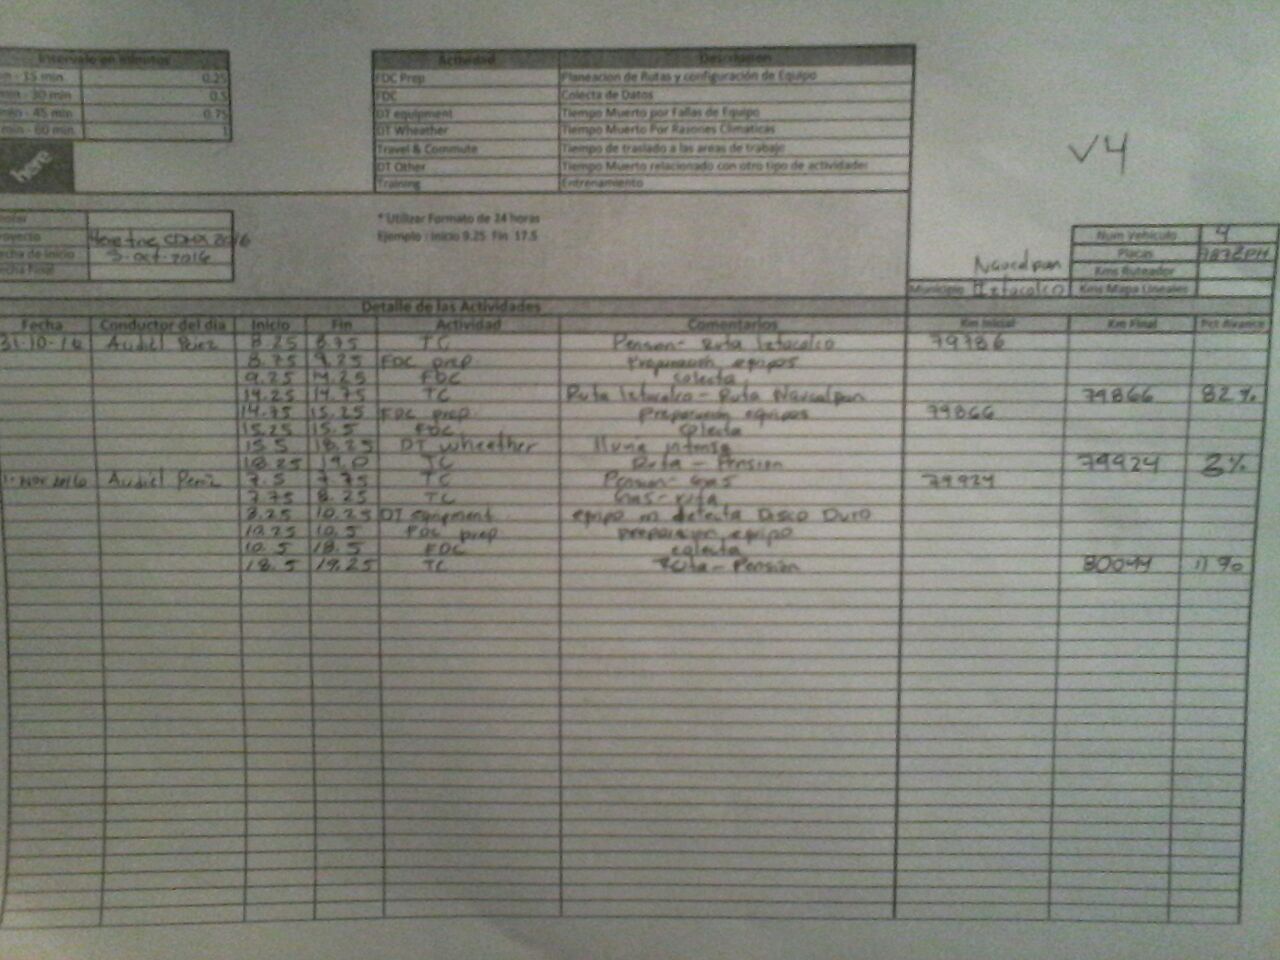 Intervalo en minutos
min - 15 min 0.25
min - 30 min 0.5
min - 45 min 0.75
min - 60 min 1
here
Actividad Descripcion
FDC Prep Planeacion de Rutas y configuración de Equipo
FDC Colecta de Datos
DT equipment Tiempo Muerto por Fallas de Equipo
DT Wheather Tiempo Muerto Por Razones Climaticas
Travel & Commute Tiempo de traslado a las areas de trabajo
DT Other Tiempo Muerto relacionado con otro tipo de actividades
Training Entrenamiento
V4
* Utilizar Formato de 24 horas
Ejemplo : Inicio 9.25 Fin 17.5
royecto CDMX 2016
echa de Inicio 3-oct-2016
echa Final
Num Vehiculo 4
Placas
Kms Ruteador
Naucalpan
Municipio Iztacalco Kms Mapa Lineales
Detalle de las Actividades
Fecha Conductor del dia Inicio Fin Actividad Comentarios Km Inicial Km Final Pct Avance
31-10-16 Audiel Perez 8.25 8.75 TC Pension - Ruta Iztacalco 79786
8.75 9.25 FDC prep Preparacion equipos
9.25 14.25 FDC colecta
14.25 14.75 TC Ruta Iztacalco - Ruta Naucalpan 79866 82 %
14.75 15.25 FDC prep preparacion equipos 79866
15.25 15.5 FDC colecta
15.5 18.25 DT wheether lluvia intensa
18.25 19.0 TC Ruta - Pension 79924 3%
1- Nov 2016 Audiel Perez 7.5 7.75 TC Pension - Gas 79924
7.75 8.25 TC Gas - ruta
8.25 10.25 DT equipment equipo no detecta Disco Duro
10.25 10.5 FDC prep preparacion equipo
10.5 18.5 FDC colecta
18.5 19.25 TC Ruta - Pension 80044 11 %